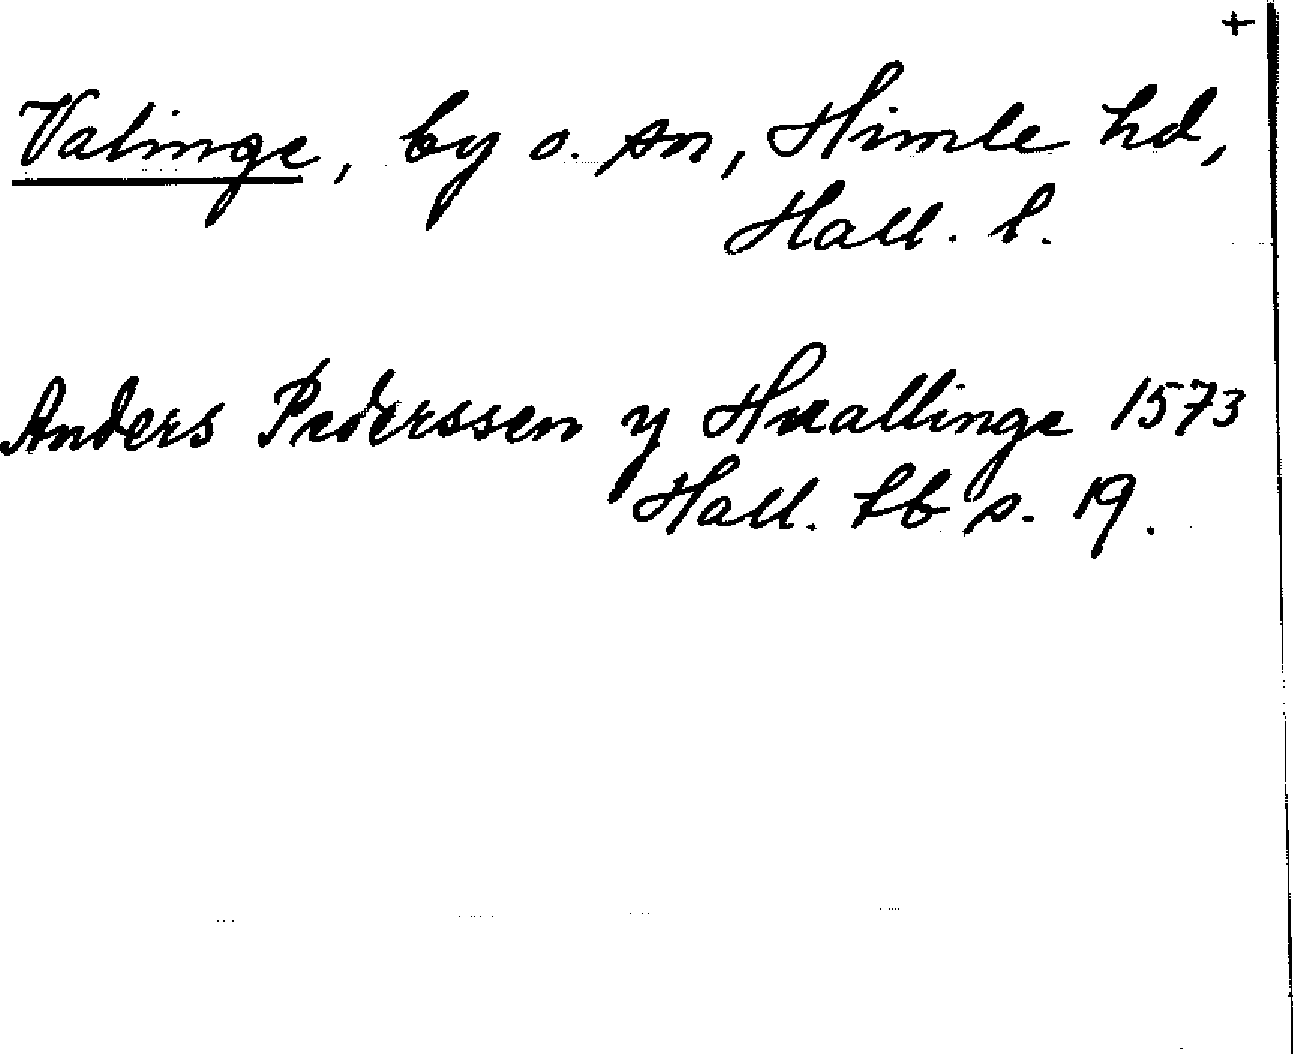 +
Valinge, by o. sn, Himle hd,
Hall. l.
Anders Pederssen y Huallinge 1573
Hall. tb s. 19.